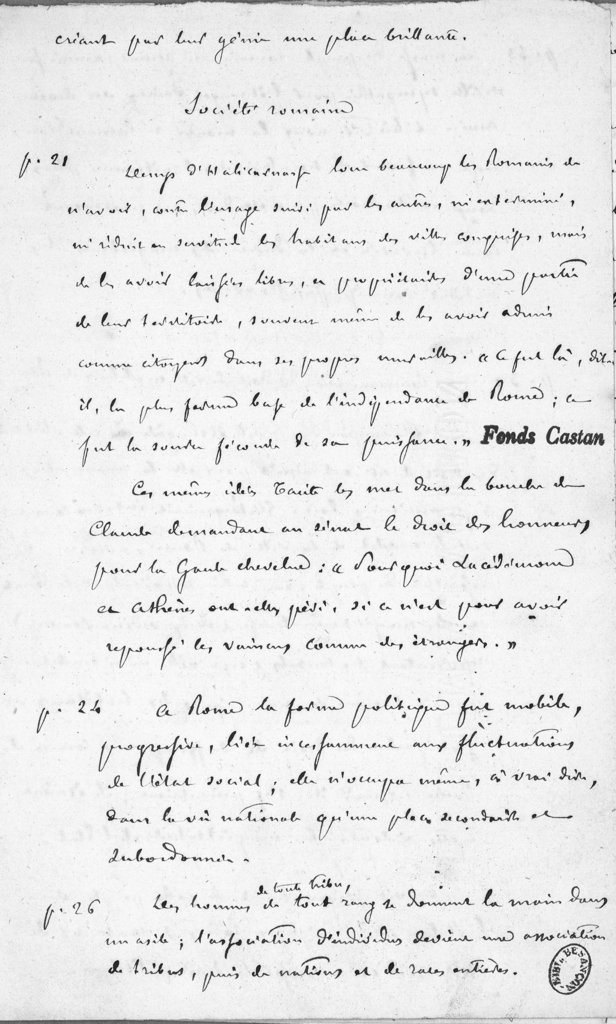 créant par leur génie une place brillante.
Société romaine
p. 21 Denys d'Halicarnasse loue beaucoup les Romains de
n'avoir, contre l'usage suivi par les autres, ni exterminé,
ni réduit en servitude les habitans des villes conquises, mais
de les avoir laissées libres, et propriétaires d'une partie
de leur territoire, souvent même de les avoir admis
comme citoyens dans ses propres murailles. « Ce fut là, disait
il, la plus ferme base de l'indépendance de Rome ; ce
fut la source féconde de sa puissance. » Fonds Castan
Ces mêmes idées Tacite les met dans la bouche de
Claude demandant au sénat le droit des honneurs
pour la Gaule chevelue : « Pourquoi Lacédémone
et Athènes ont-elles péri, si ce n'est pour avoir
repoussé les vaincus comme des étrangers. »
p. 24 A Rome la forme politique fut mobile,
progressive, liée incessamment aux fluctuations
de l'état social ; elle n'occupa même, à vrai dire,
dans la vie nationale qu'une place secondaire et
subordonnée.
de toute tribu,
p. 26 Des hommes de tout rang se donnent la main dans
un asile ; l'association d'individus devient une association
de tribus, puis de nations et de races entières.
BIBL. BESANÇON